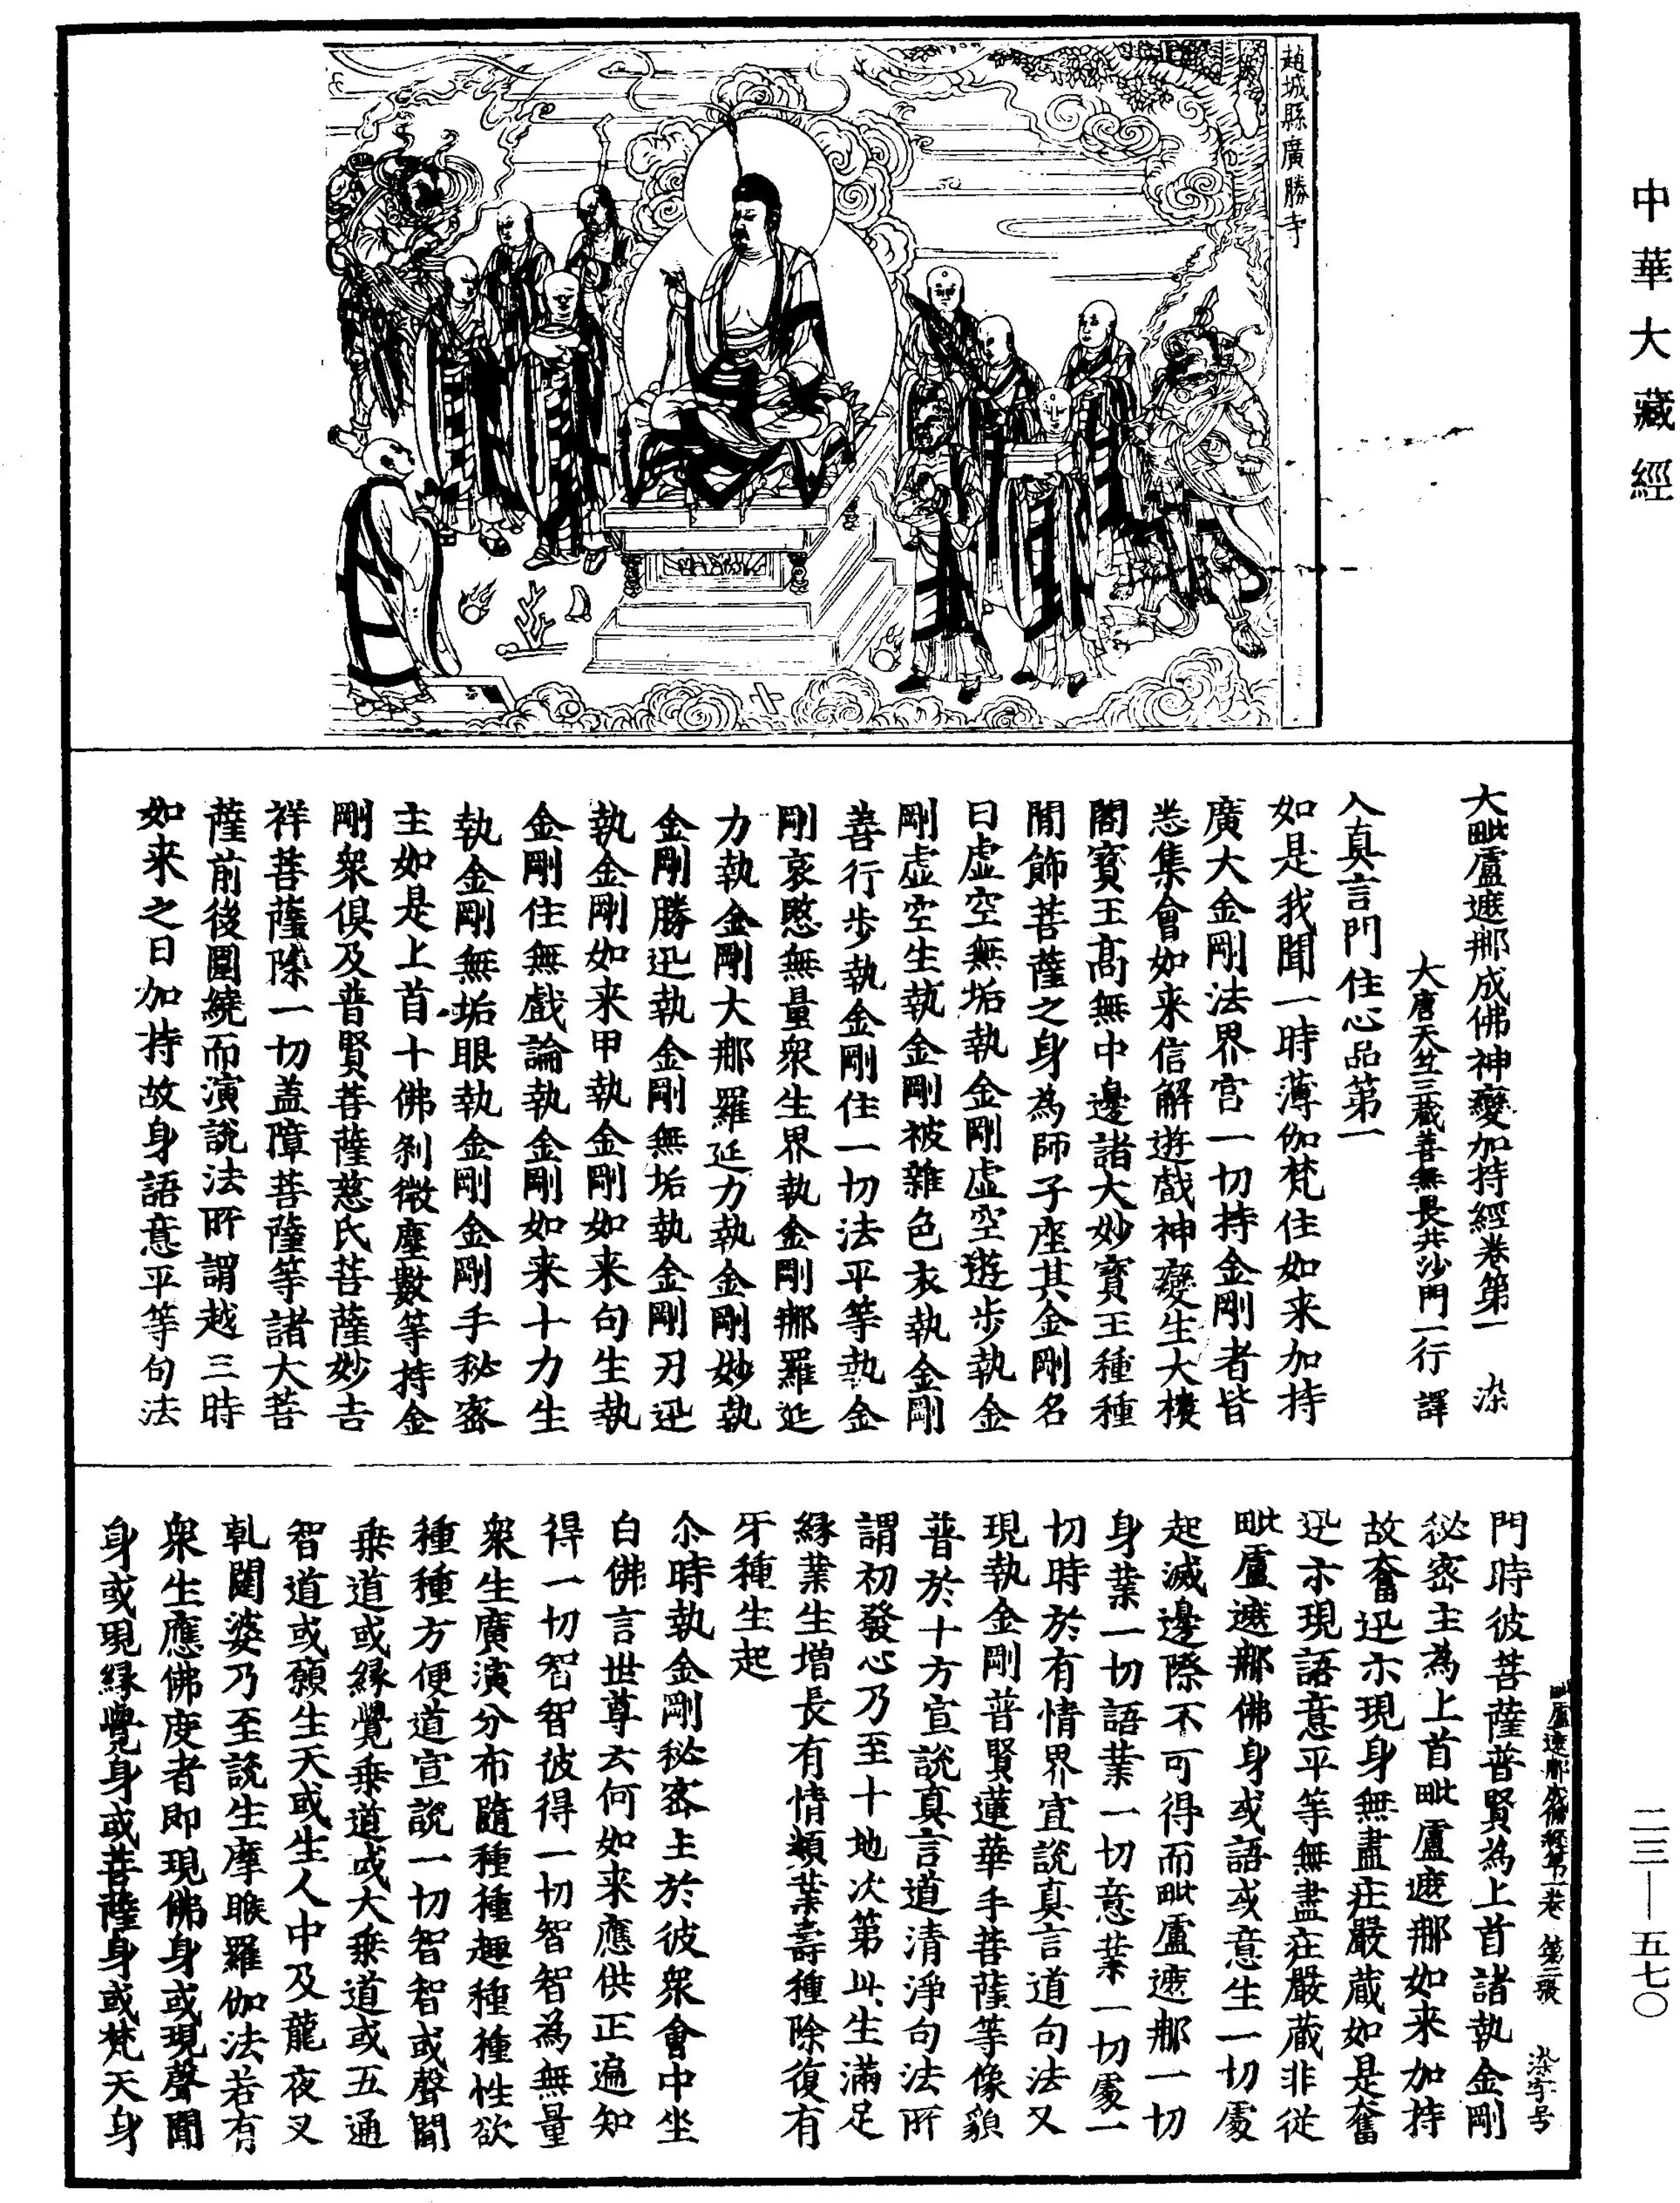 中華大藏經
趙城縣廣勝寺
大毗盧遮那成佛神變加持經卷第一　染
大唐天竺三藏善無畏共沙門一行　譯
入真言門住心品第一
如是我聞一時薄伽梵住如来加持
廣大金剛法界宫一切持金剛者皆
悉集會如来信解遊戲神變生大樓
閣寳王髙無中邊諸大妙寳王種種
閒飾菩薩之身為師子座其金剛名
曰虚空無垢執金剛虚空遊步執金
剛虚空生執金剛被雜色衣執金剛
善行步執金剛住一切法平等執金
剛哀愍無量衆生界執金剛那羅延
力執金剛大那羅延力執金剛妙執
金剛勝迅執金剛無垢執金剛刃迅
執金剛如来甲執金剛如来句生執
金剛住無戲論執金剛如来十力生
執金剛無垢眼執金剛金剛手秘密
主如是上首十佛刹微塵數等持金
剛衆俱及普賢菩薩慈氏菩薩妙吉
祥菩薩除一切盖障菩薩等諸大菩
薩前後圍繞而演說法所謂越三時
如来之日加持故身語意平等句法
毗盧遮那成佛經第一卷　第二張　染字号
門時彼菩薩普賢為上首諸執金剛
秘密主為上首毗盧遮那如来加持
故奮迅示現身無盡莊嚴蔵如是奮
迅示現語意平等無盡莊嚴蔵非従
毗盧遮那佛身或語或意生一切處
起滅邊際不可得而毗盧遮那一切
身業一切語業一切意業一切處一
切時於有情界宣說真言道句法又
現執金剛普賢蓮華手菩薩等像貌
普於十方宣說真言道清淨句法所
謂初發心乃至十地次第此生滿足
縁業生増長有情類業壽種除復有
牙種生起
尒時執金剛秘密主於彼衆會中坐
白佛言世尊云何如来應供正遍知
得一切智智彼得一切智智為無量
衆生廣演分布隨種種趣種種性欲
種種方便道宣說一切智智或聲聞
乗道或縁覺乗道或大乗道或五通
智道或願生天或生人中及龍夜叉
乾闥婆乃至說生摩睺羅伽法若有
衆生應佛度者即現佛身或現聲聞
身或現縁覺身或菩薩身或梵天身
二三—五七〇